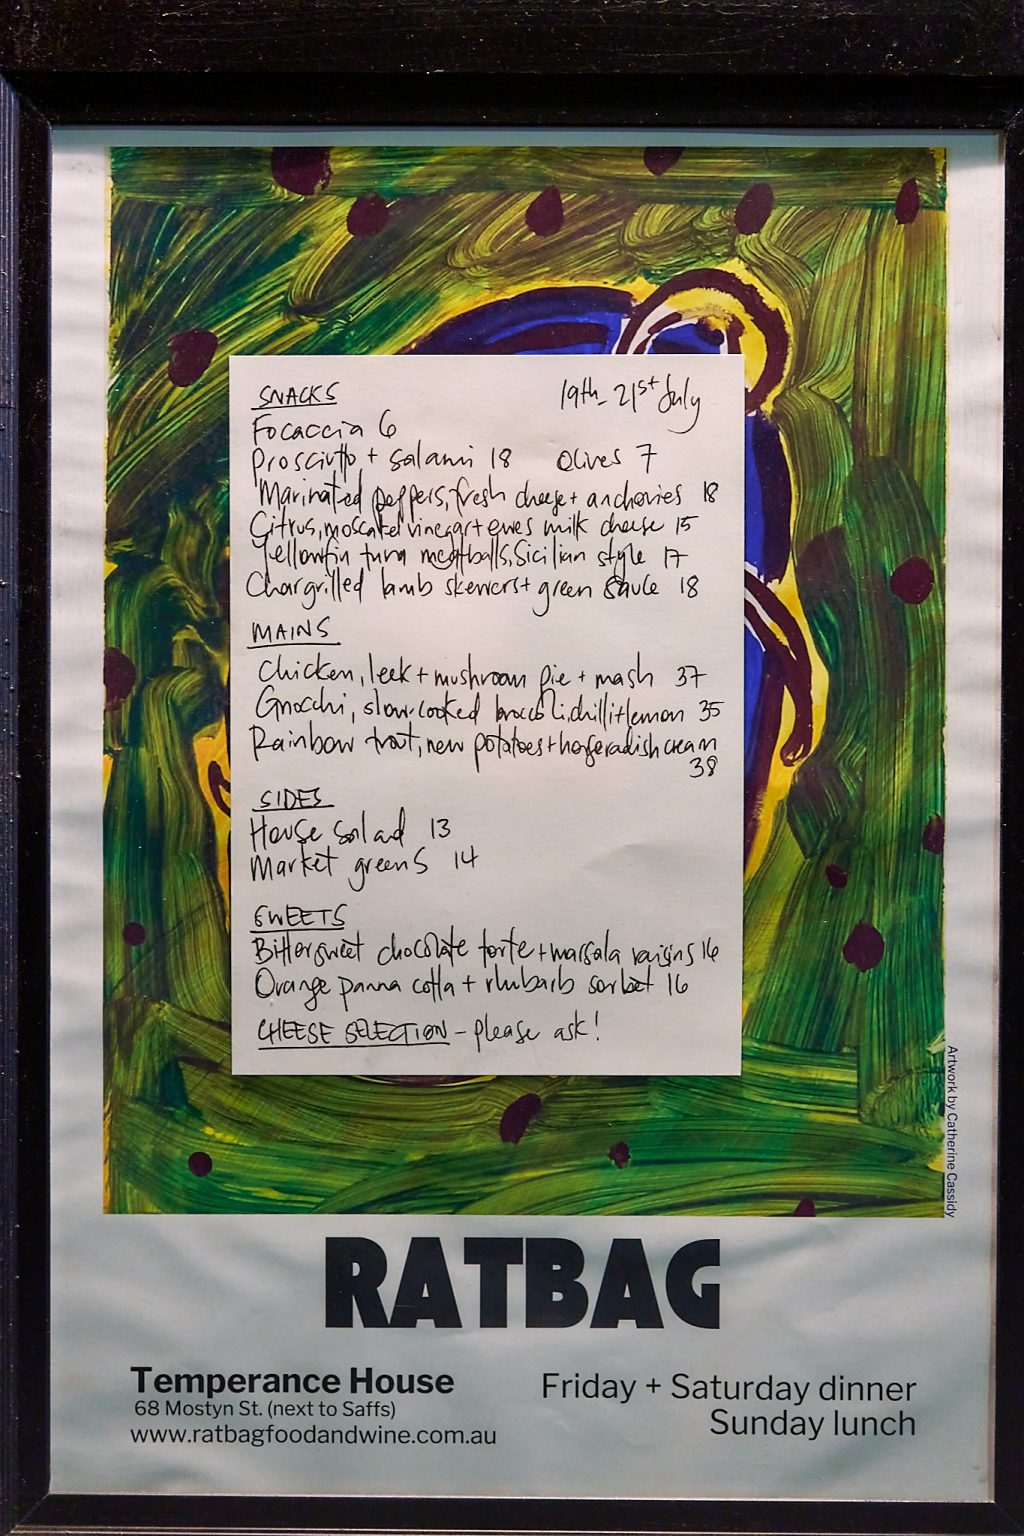 SNACKS 19th - 21st July
Focaccia 6
Prosciutto + salami 18 Olives 7
Marinated peppers, fresh cheese + anchovies 18
Citrus, moscatel vinegar + ewes milk cheese 15
Yellowfin tuna meatballs, Sicilian style 17
Chargrilled lamb skewers + green sauce 18
MAINS
Chicken, leek + mushroom pie + mash 37
Gnocchi, slow-cooked broccoli, chilli + lemon 35
Rainbow trout, new potatoes + horseradish cream
38
SIDES
House salad 13
Market greens 14
SWEETS
Bittersweet chocolate torte + marsala raisins 16
Orange panna cotta + rhubarb sorbet 16
CHEESE SELECTION - please ask!
Artwork by Catherine Cassidy
RATBAG
Temperance House
68 Mostyn St. (next to Saffs)
www.ratbagfoodandwine.com.au
Friday + Saturday dinner
Sunday lunch